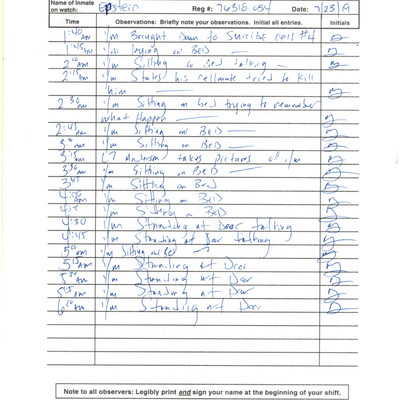 Name of Inmate
on watch: Epstein Reg #: 76318-054 Date: 7/23/19
Time Observations: Briefly note your observations. Initial all entries. Initials
1:40 am I/m Brought Down to Suicide cell #4
1:45 am I/m laying on BED
2:00 am I/m Sitting on Bed talking
2:15 am I/m States his cellmate tried to kill
him
2:30 am I/m Sitting on bed trying to remember
what Happen
2:45 am I/m Sitting on BED
3:00 am I/m Sitting on BED
3:15 am LT takes pictures of I/m
3:30 am I/m Sitting on BED
3:45 I/m Sitting on Bed
4:00 am I/m Sitting on BED
4:15 I/m on BED
4:30 I/m Standing at Door talking
4:45 I/m Standing at Door talking
5:00 am I/m Sitting on Bed
5:15 am I/m Standing at Door
5:30 am I/m Standing at Door
5:45 am I/m Standing at Door
6:00 am I/m Standing at Door
Note to all observers: Legibly print and sign your name at the beginning of your shift.